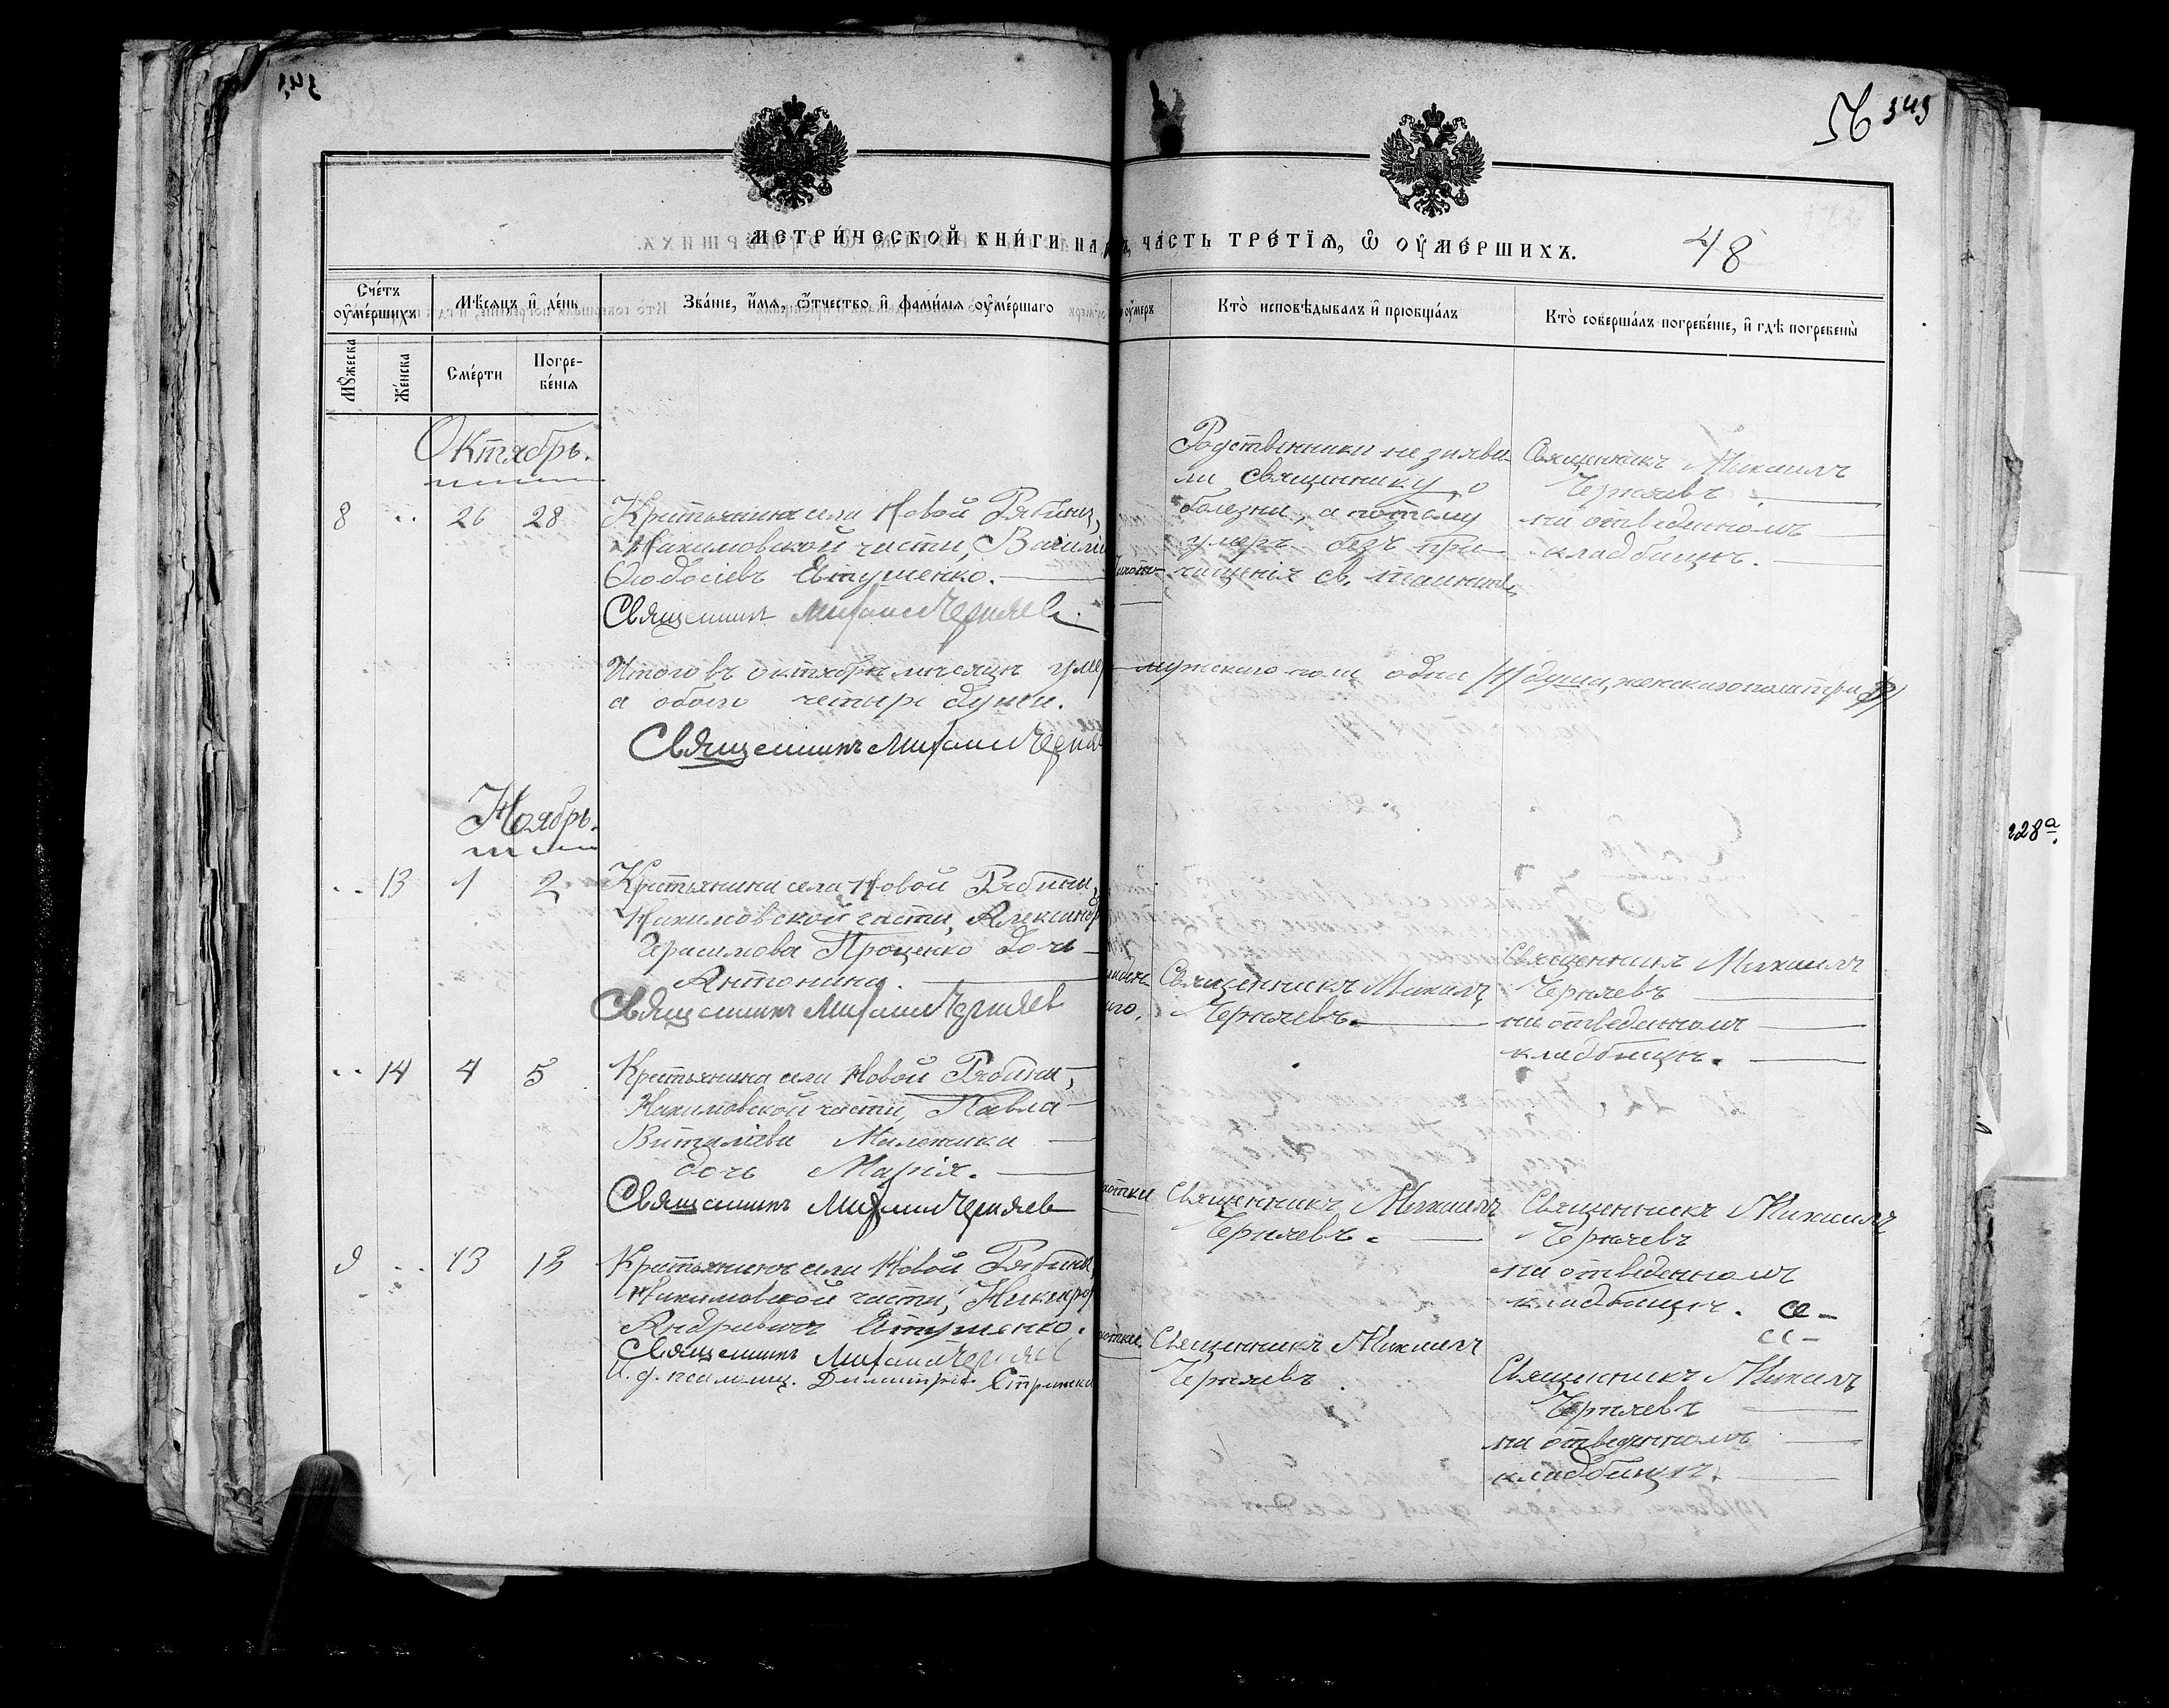 56 343
МЕТРИ́ЧЕСКОЙ КНИ́ГИ НА
ЧА́СТЬ ТРЕ́ТІѦ, Ѽ ОУ҆МЕ́РШИХЪ.
48
Сче́тъ оу҆ме́ршихъ
Мѣ́сяцъ и҆ де́нь
Зва́ніе, и҆́мя, ѻ҆́тчество и҆ фами́лія оу҆ме́ршаго
оу҆́меръ
Кто̀ исповѣ́дывалъ и҆ пріобща́лъ
Кто̀ соверша́лъ погребе́ніе, и҆ гдѣ̀ погребены̀
Мꙋ́жеска
Же́нска
Сме́рти
Погре-
бе́нія
Октябрь.
8 " 26 28
Крестьянинъ села Новой Рябины,
Нахимовской части, Василій
Ѳеодосіевъ Евтушенко.
Священникъ Михаилъ Черняевъ.
Родственники не заяви-
ли священнику о
болезни, а потому
умеръ безъ при-
чащенія св. таинствъ
Священникъ Михаилъ
Черняевъ
на отведенномъ
кладбищѣ.
Итого въ октябрѣ мѣсяцѣ умер мужскаго пола одна /1/ душа, женскаго пола три /3/
а обоего четыре души.
Священникъ Михаилъ Черняе
Ноябрь.
" 13 1 2
Крестьянина села Новой Рябины,
Нахимовской части, Александр
Герасимова Проценко дочь
Антонина.
Священникъ Михаилъ Черняев
Священникъ Михаилъ
Черняевъ.
Священникъ Михаилъ
Черняевъ
на отведенномъ
кладбищѣ.
" 14 4 5
Крестьянина села Новой Рябины,
Нахимовской части, Павла
Виталіева
дочь Марія.
Священникъ Михаилъ Черняев
Священникъ Михаилъ
Черняевъ.
Священникъ Михаилъ
Черняевъ
на отведенномъ
кладбищѣ.
9 " 13 13
Крестьянинъ села Новой Рябины,
Нахимовской части, Никифор
Андреевичъ Евтушенко.
Священникъ Михаилъ Черняев
И. д. псаломщ. Димитрій
Священникъ Михаилъ
Черняевъ
Священникъ Михаилъ
Черняевъ
на отведенномъ
кладбищѣ.
228а.